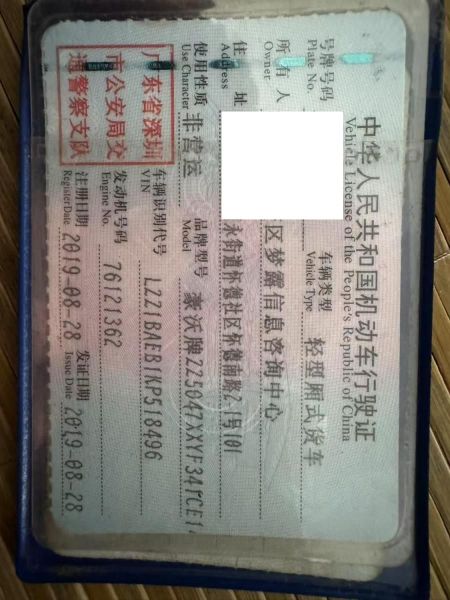 中华人民共和国机动车行驶证
Vehicle License of the People's Republic of China
号牌号码
Plate No.
车辆类型 轻型厢式货车
Vehicle Type
所有人 区梦露信息咨询中心
Owner
住址 永街道怀德社区怀德南路2-1号101
Address
使用性质 非营运
Use Character
品牌型号 豪沃牌ZZ5047XXYF341CE1
Model
广东省深圳
市公安局交
通警察支队
车辆识别代号 LZZ1BAEB1KP518496
VIN
发动机号码 76121362
Engine No.
注册日期 2019-08-28
Register Date
发证日期 2019-08-28
Issue Date